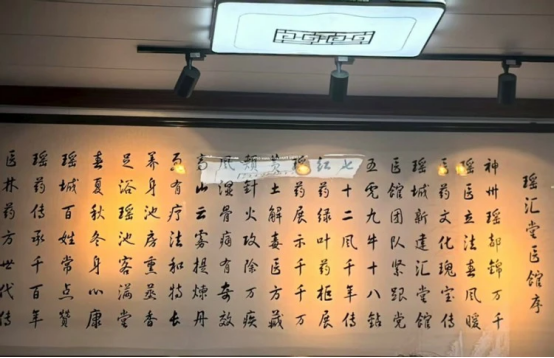 瑶汇堂医馆序
神州瑶都锦万千
瑶医立法春风暖
药文化瑰宝传
瑶城新建汇堂馆
医馆团队紧跟党
五虎九牛十八钻
七十二风千年传
红药绿叶药柜展
瑶药展示千千万
土解毒医方藏
针火攻除万疾
风湿骨病有奇效
高山云雾提炼丹
有疗法和特长
养身池房熏蒸香
足浴瑶池客满堂
春夏秋冬身心康
瑶城百姓常点赞
瑶药传承千百年
医林药方世代传